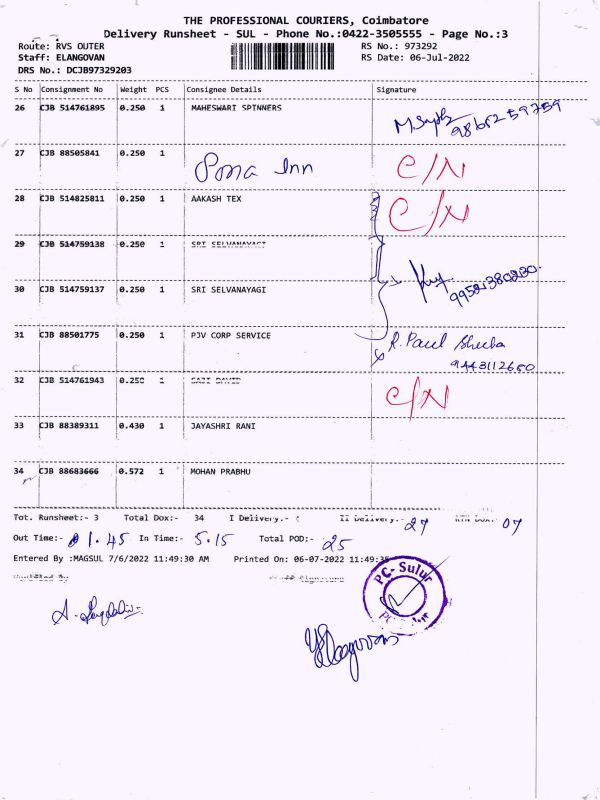 THE PROFESSIONAL COURIERS, Coimbatore
Delivery Runsheet - SUL - Phone No.:0422-3505555 - Page No.:3
Route: RVS OUTER RS No.: 973292
Staff: ELANGOVAN RS Date: 06-Jul-2022
DRS No.: DCJB97329203
S No Consignment No Weight PCS Consignee Details Signature
26 CJB 514761895 0.250 1 MAHESWARI SPINNERS
27 CJB 88505841 0.250 1 Inn C/N
28 CJB 514825811 0.250 1 AAKASH TEX C/N
29 CJB 514759138 0.250 1 SRI SELVANAYAGI
30 CJB 514759137 0.250 1 SRI SELVANAYAGI
31 CJB 88501775 0.250 1 PJV CORP SERVICE R. Paul Sheeba
9443112660
32 CJB 514761943 0.250 1 SAJI DAVID C/N
33 CJB 88389311 0.430 1 JAYASHRI RANI
34 CJB 88683666 0.572 1 MOHAN PRABHU
Tot. Runsheet:- 3 Total Dox:- 34 I Delivery:- II Delivery:- 27 RTN Dox: 07
Out Time:- 1.45 In Time:- 5.15 Total POD:- 25
Entered By :MAGSUL 7/6/2022 11:49:30 AM Printed On: 06-07-2022 11:49:35
PC-Sulur